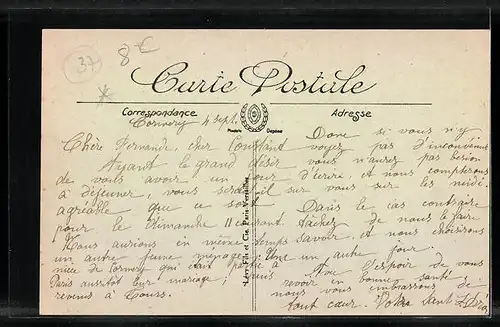 37
8€
Carte Postale
Correspondance
Adresse
Modèle Déposé
Cormery 4 sept.
Chère Fernande, cher Constant
Ayant le grand désir
de vous avoir un jour
à déjeuner, vous serait-il
agréable que ce soit
pour le dimanche 11 courant.
Nous aurions en même temps
un autre jeune ménage, une
nièce de Cormery qui était partie à
Paris aussitôt leur mariage,
revenus à Tours.
Lévy Fils et Cie, Paris-Versailles
Donc si vous n'y
voyez pas d'inconvénient
vous n'aurez pas besoin
d'écrire, et nous compterons
sur vous sur les midi.
Dans le cas contraire
tâchez de nous le faire
savoir, et nous choisirons
un autre jour.
l'espoir de vous
revoir en bonne santé
nous vous embrassons de
tout cœur. Votre